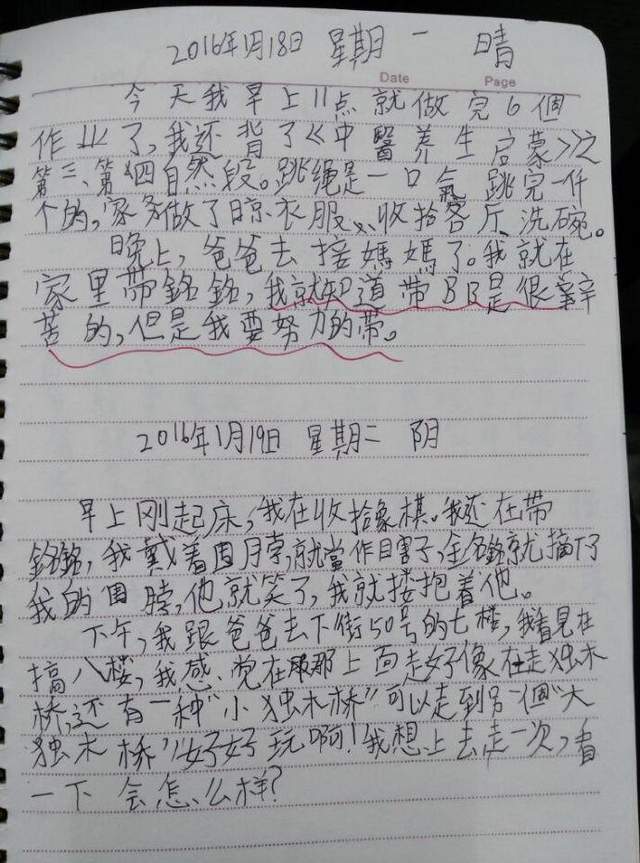 2016年1月18日 星期一 晴
Date Page
今天我早上11点就做完6個
作业了,我还背了《中醫养生启蒙》之
第三、第四自然段。跳绳是一口氣跳完一仟
个的,家务做了晾衣服、收拾客厅、洗碗。
晚上,爸爸去接媽媽了。我就在
家里带銘銘,我就知道带BB是很辛
苦的,但是我要努力的带。
2016年1月19日 星期二 阴
早上刚起床,我在收拾象棋。我还在带
銘銘,我戴着围脖,就當作目害子,銘銘就摘下了
我的围脖,他就笑了,我就搂抱着他。
下午,我跟爸爸去下街50号的七楼,我看見在
搞八楼,我感觉在那上面走好像在走独木
桥,还有一种"小独木桥"可以走到另一個"大
独木桥"!好好玩啊!我想上去走一次,看
一下会怎么样?